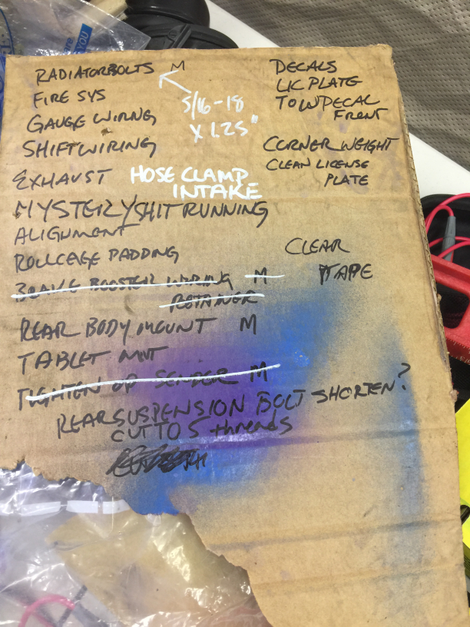 RADIATOR BOLTS M
5/16-18
X 1.25"
FIRE SYS
GAUGE WIRNG
SHIFT WIRING
EXHAUST
HOSE CLAMP
INTAKE
MYSTERY SHIT RUNNING
ALIGNMENT
ROLLCEGE PADDING
BRAKE BOOSTER WIRING M
RETAINER
REAR BODY MOUNT M
TABLET MNT
TIGHTEN OP SENDER M
REAR SUSPENSION BOLT SHORTEN?
CUT TO 5 threads
DECALS
LIC PLATE
TOW DECAL
FRONT
CORNER WEIGHT
CLEAN LICENSE
PLATE
CLEAR
TAPE